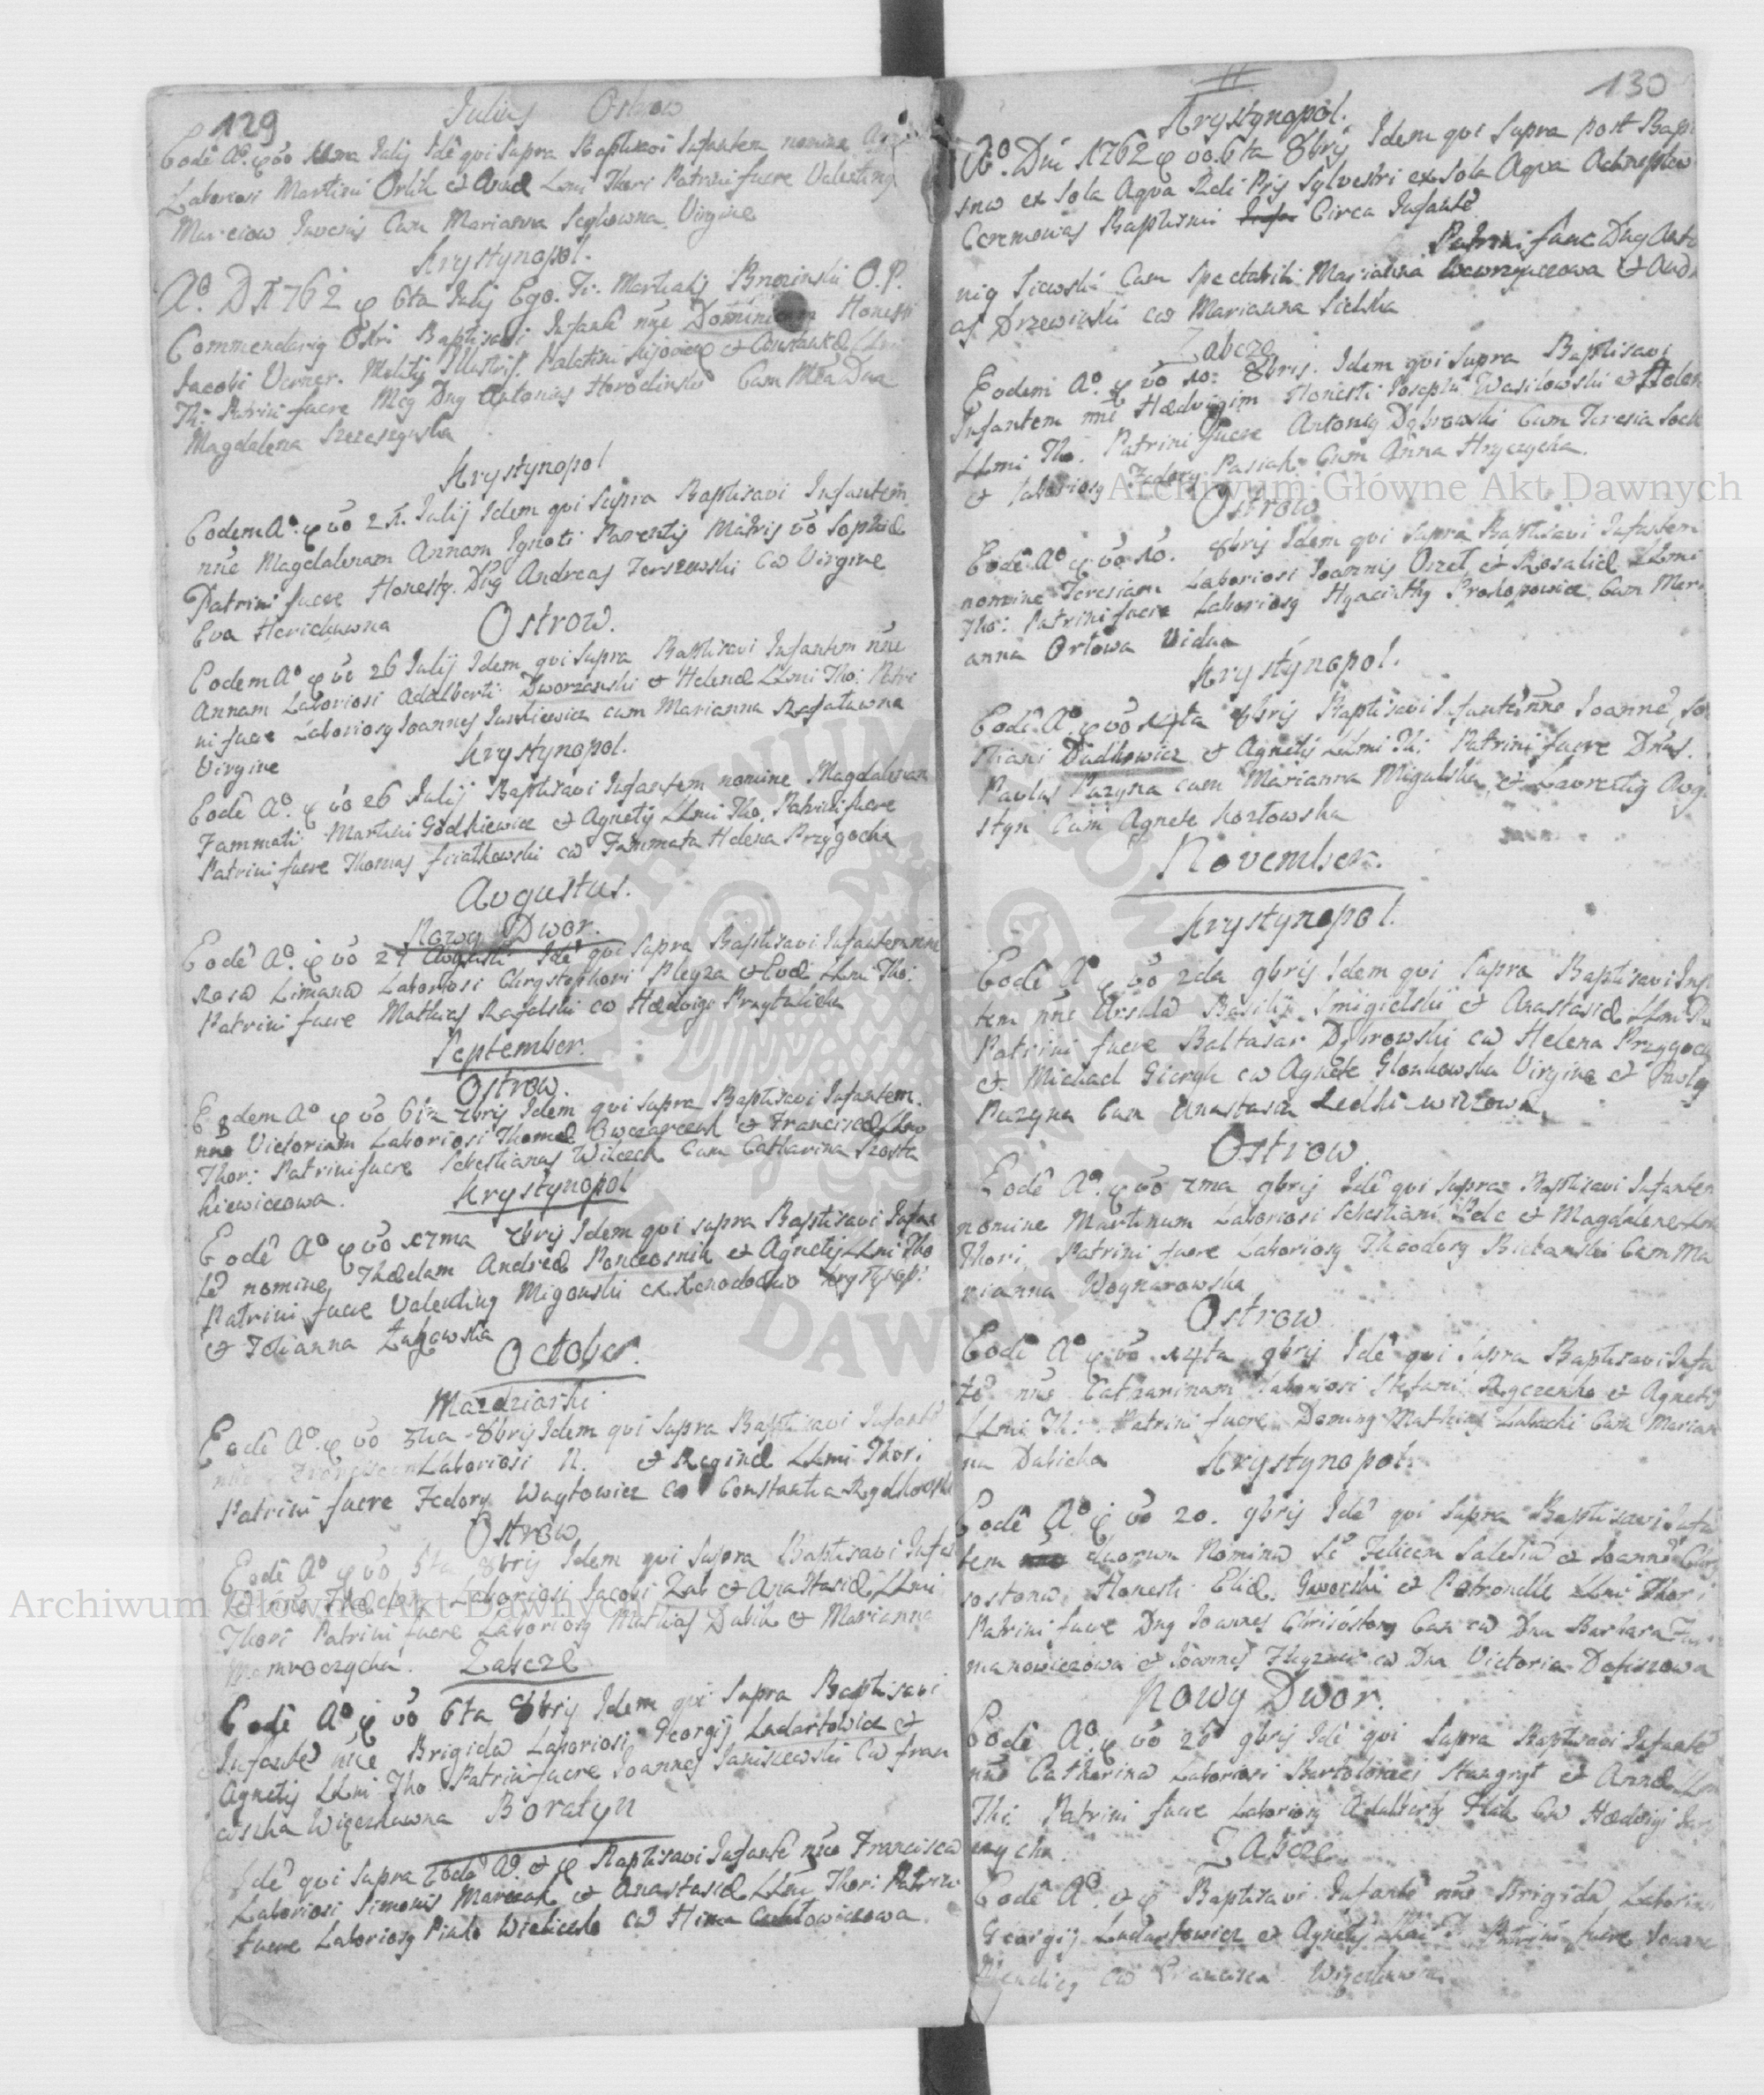 129
Julius Ostrow
Eodē Aº. ϕ vō 11ma Julij Idē qui Supra Baptisavi Infantem nomine
Laboriosi Martini Orlik et Annæ LLmi Thori Patrini fuere Valentinus
Marciow Juvenis Cum Marianna Virgine
Krystynopol.
Aº D 1762 ϕ 6ta Julij Ego. Fr. Martialis Brzezinski O.P.
Commendarius Ostri Baptisavi Infantē nñe Honesti
Jacobi Verner. Militis Illustris. Palatini Kijoviens et Constantiæ LLmi
Th: Patrini fuere Mcus Dnus Antonius Horodinski Cum Mca Dna
Magdalena
Krystynopol
Eodem Aº. ϕ vō 21. Julij Idem qui Supra Baptisavi Infantem
nñe Magdalenam Annam Ignoti Parentis Matris vō Sophiæ
Patrini fuere Honestus. Dnus Andreas Jerszewski Cū Virgine
Eva Herichuwna
Ostrow.
Eodem Aº ϕ vō 26 Julij Idem qui Supra Baptisavi Infantem nñe
Annam Laboriosi Adalberti Dworzanski et Helenæ LLmi Tho: Patri
ni fuere Laboriosus Joannes Jaskiewicz cum Marianna Rafatawna
Virgine
Krystynopol.
Eodē Aº. ϕ vō 26 Julij Baptisavi Infantem nomine Magdalenam
Fammati Martini Godkiewicz et Agnetis LLmi Tho. Patrini fuere
Patrini fuere Thomas Fiałkowski cū Fammata Helena Przygocka
Augustus.
Nowy Dwor.
Eodē Aº. ϕ vō 29 Augusti Idē qui Supra Baptisavi Infantem nñe
Rosā Limanā Laboriosi Chrystophori Pleyza et Evæ LLmi Tho:
Patrini fuere Mathias Rafalski cū Hedvigi Przytulicka
September.
Ostrow.
Eodem Aº ϕ vō 6ta 7bris Idem qui Supra Baptisavi Infantem
nñe Victoriam Laboriosi Thomæ Owczarczuk et Franciscæ LLmi
Thor: Patrini fuere Sebestianus Wilczek Cum Catharina Szosta
kiewiczowa.
Krystynopol
Eodē Aº ϕ vō 17ma 7bris Idem qui supra Baptisavi Infan
tē nomine Thædeam Andreæ Ponczosnik et Agnetis LLmi Tho
Patrini fuere Valentinus Migonski ex Xenodochio Krystynopi
et Julianna Łukowska
October.
Mazdziarki
Eodē Aº. ϕ vō 5ta 8bris Idem qui Supra Baptisavi Infantē
Laboriosi N. et Reginæ LLmi Thori
Patrini fuere Fedory Woytowicz cū Constantia
Ostrow
Eodē Aº ϕ vō 5ta 8bris Idem qui Supra Baptisavi Infan
Laboriosi Jacobi Zub et Anastasiæ LLmi
Thori Patrini fuere Laboriosus Mathias Dubik et Marianna
Zabcze
Eodē Aº ϕ vō 6ta 8bris Idem qui Supra Baptisavi
Infantē nñe Brigidā Laboriosi Georgij Ludartowicz et
Agnetis LLmi Tho Patrini fuere Joannes Janiszewski Cū Fran
ciszka Wigezkuwna
Boratyn
Idē qui Supra Eodē Aº. et ϕ Baptisavi Infantē nñe Franciscā
Laboriosi Simonis Marczak et Anastasiæ LLmi Thori Patrini
fuere Laboriosus Piotr cū
130
Krystynopol.
Aº. Dni 1762 ϕ vō. 6ta 8bris Idem qui Supra post Bapti
smū ex Sola Aqva Rdi Pris Sylvestri ex Sola Aqva
Ceremonias Baptismi Circa Infantē
Patrini fuere Dnus Anto
nius Cum Spectabili Marianna et And
as Drzewinski cū Marianna Sielska
Zabcze
Eodem Aº. ϕ vō 10: 8bris. Idem qui Supra Baptisavi
Infantem nñe Hædvigim Honesti Josephi Wasilowski et Helen
LLmi Tho. Patrini fuere Antonius Dąbrowski Cum Teresia
et Laboriosus Fedory Pasiak Cum Anna Hryczycha.
Ostrow
Eodē Aº ϕ vō 10. 8bris Idem qui Supra Baptisavi Infantem
nomine Teresiam Laboriosi Joannis Orzeł et Rosaliæ LLmi
Tho: Patrini fuere Laboriosus Hyacinthus Prokopowicz Cum Mari
anna Orłowa Vidua
Krystynopol.
Eodē Aº ϕ vō 14ta 8bris Baptisavi Infantē nñe Joannē, Se
stiani Dudkowicz et Agnetis LLmi Thi Patrini fuere Dnus.
Paulus Puzyna cum Marianna Migulska et Laurentius Aug
styn Cum Agnete Kozłowska
November.
Krystynopol.
Eodē Aº ϕ vō 2da 9bris Idem qui Supra Baptisavi Infan
tem nñe Ursulā Basilij Smigielski et Anastasiæ LLmi Th
Patrini fuere Baltasar Dąbrowski cū Helena Przygocka
et Michael Gieryk cū Agnete Glonkowska Virgine et Paulus
Puzyna Cum Anastasia
Ostrow
Eodē Aº. ϕ vō 7ma 9bris Idē qui Supra Baptisavi Infantem
nomine Martinum Laboriosi Sebestiani Pelc et Magdalene LLmi
Thori. Patrini fuere Laboriosus Theodorus Cum Ma
rianna Woynarowska
Ostrow
Eodē Aº ϕ vō 14ta 9bris Idē qui Supra Baptisavi Infa
tē nñe Catharinam Laboriosi Stefani et Agnetis
LLmi Th: Patrini fuere Dominus Mathias Lubacki Cum Marian
na Dubicka
Krystynopol.
Eodē Aº ϕ vō 20. 9bris Idē qui Supra Baptisavi Infan
tem duorum Nominū Sc Felicem Salesiū et Joannē Chry
sostomū Honesti Eliæ Gworski et Petronelle LLmi Thori
Patrini fuere Dnus Joannes Chrisostomus cū Dna Barbara
manowiczowa et Joannes cū Dna Victoria
Nowy Dwor.
Eodē Aº. ϕ vō 26 9bris Idē qui Supra Baptisavi Infantē
nñe Catharinā Laboriosi Bartolomæi et Annæ LLmi
Thi Patrini fuere Laboriosus Adalbertus Cū Hædvigi
Zabcze
Eodē Aº. et ϕ Baptisavi Infantē nñe Brigidā Laboriosi
Georgij Ludartowicz et Agnetis Patrini fuere Joannes
cū Francisca
Archiwum Główne Akt Dawnych
Archiwum Główne Akt Dawnych
ARCHIWUM GŁÓWNE AKT DAWNYCH